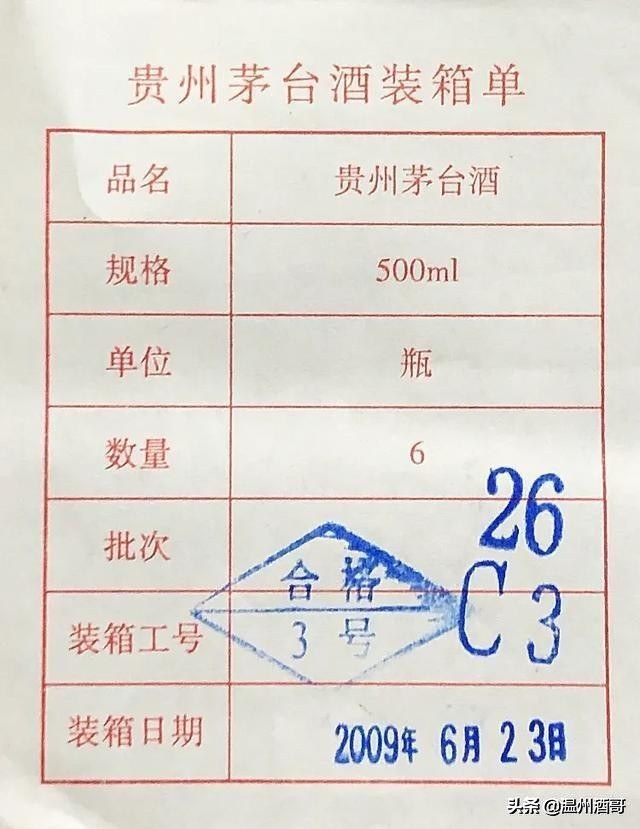 贵州茅台酒装箱单
品名 贵州茅台酒
规格 500ml
单位 瓶
数量 6
批次 26
合格
装箱工号 3号 C3
装箱日期 2009年 6月 23日
头条 @温州酒哥